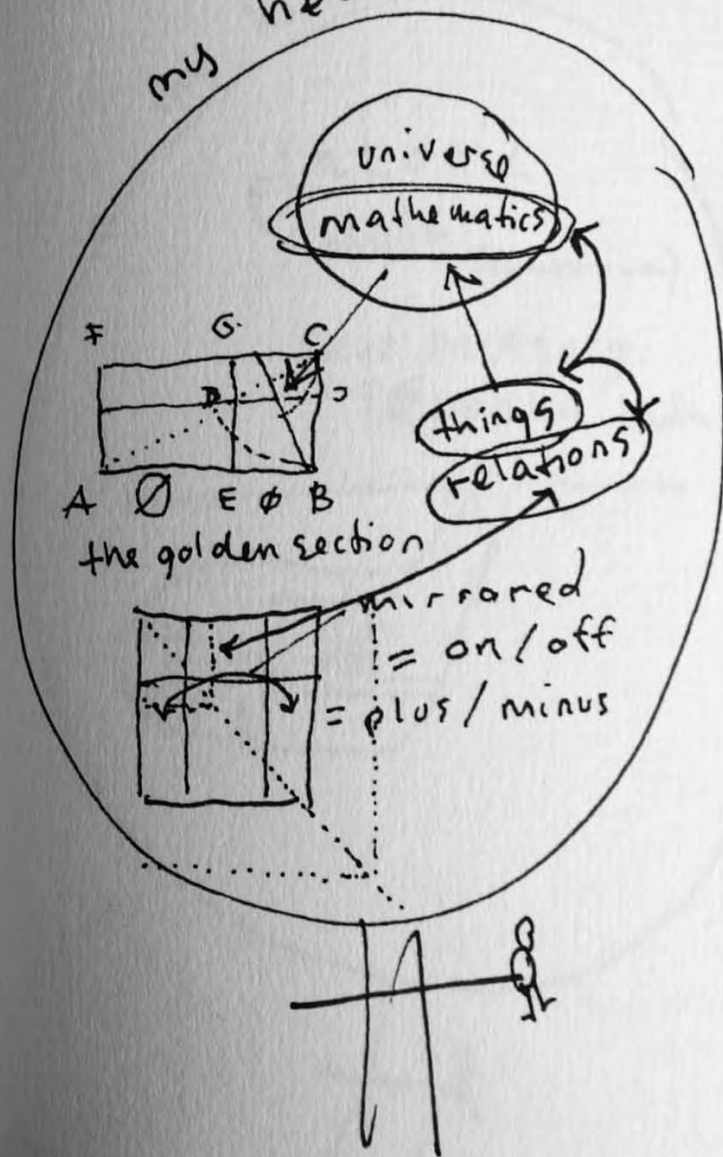 my
universe
mathematics
F G C
D J
things
relations
A Ø E ø B
the golden section
mirrored
= on / off
= plus / minus